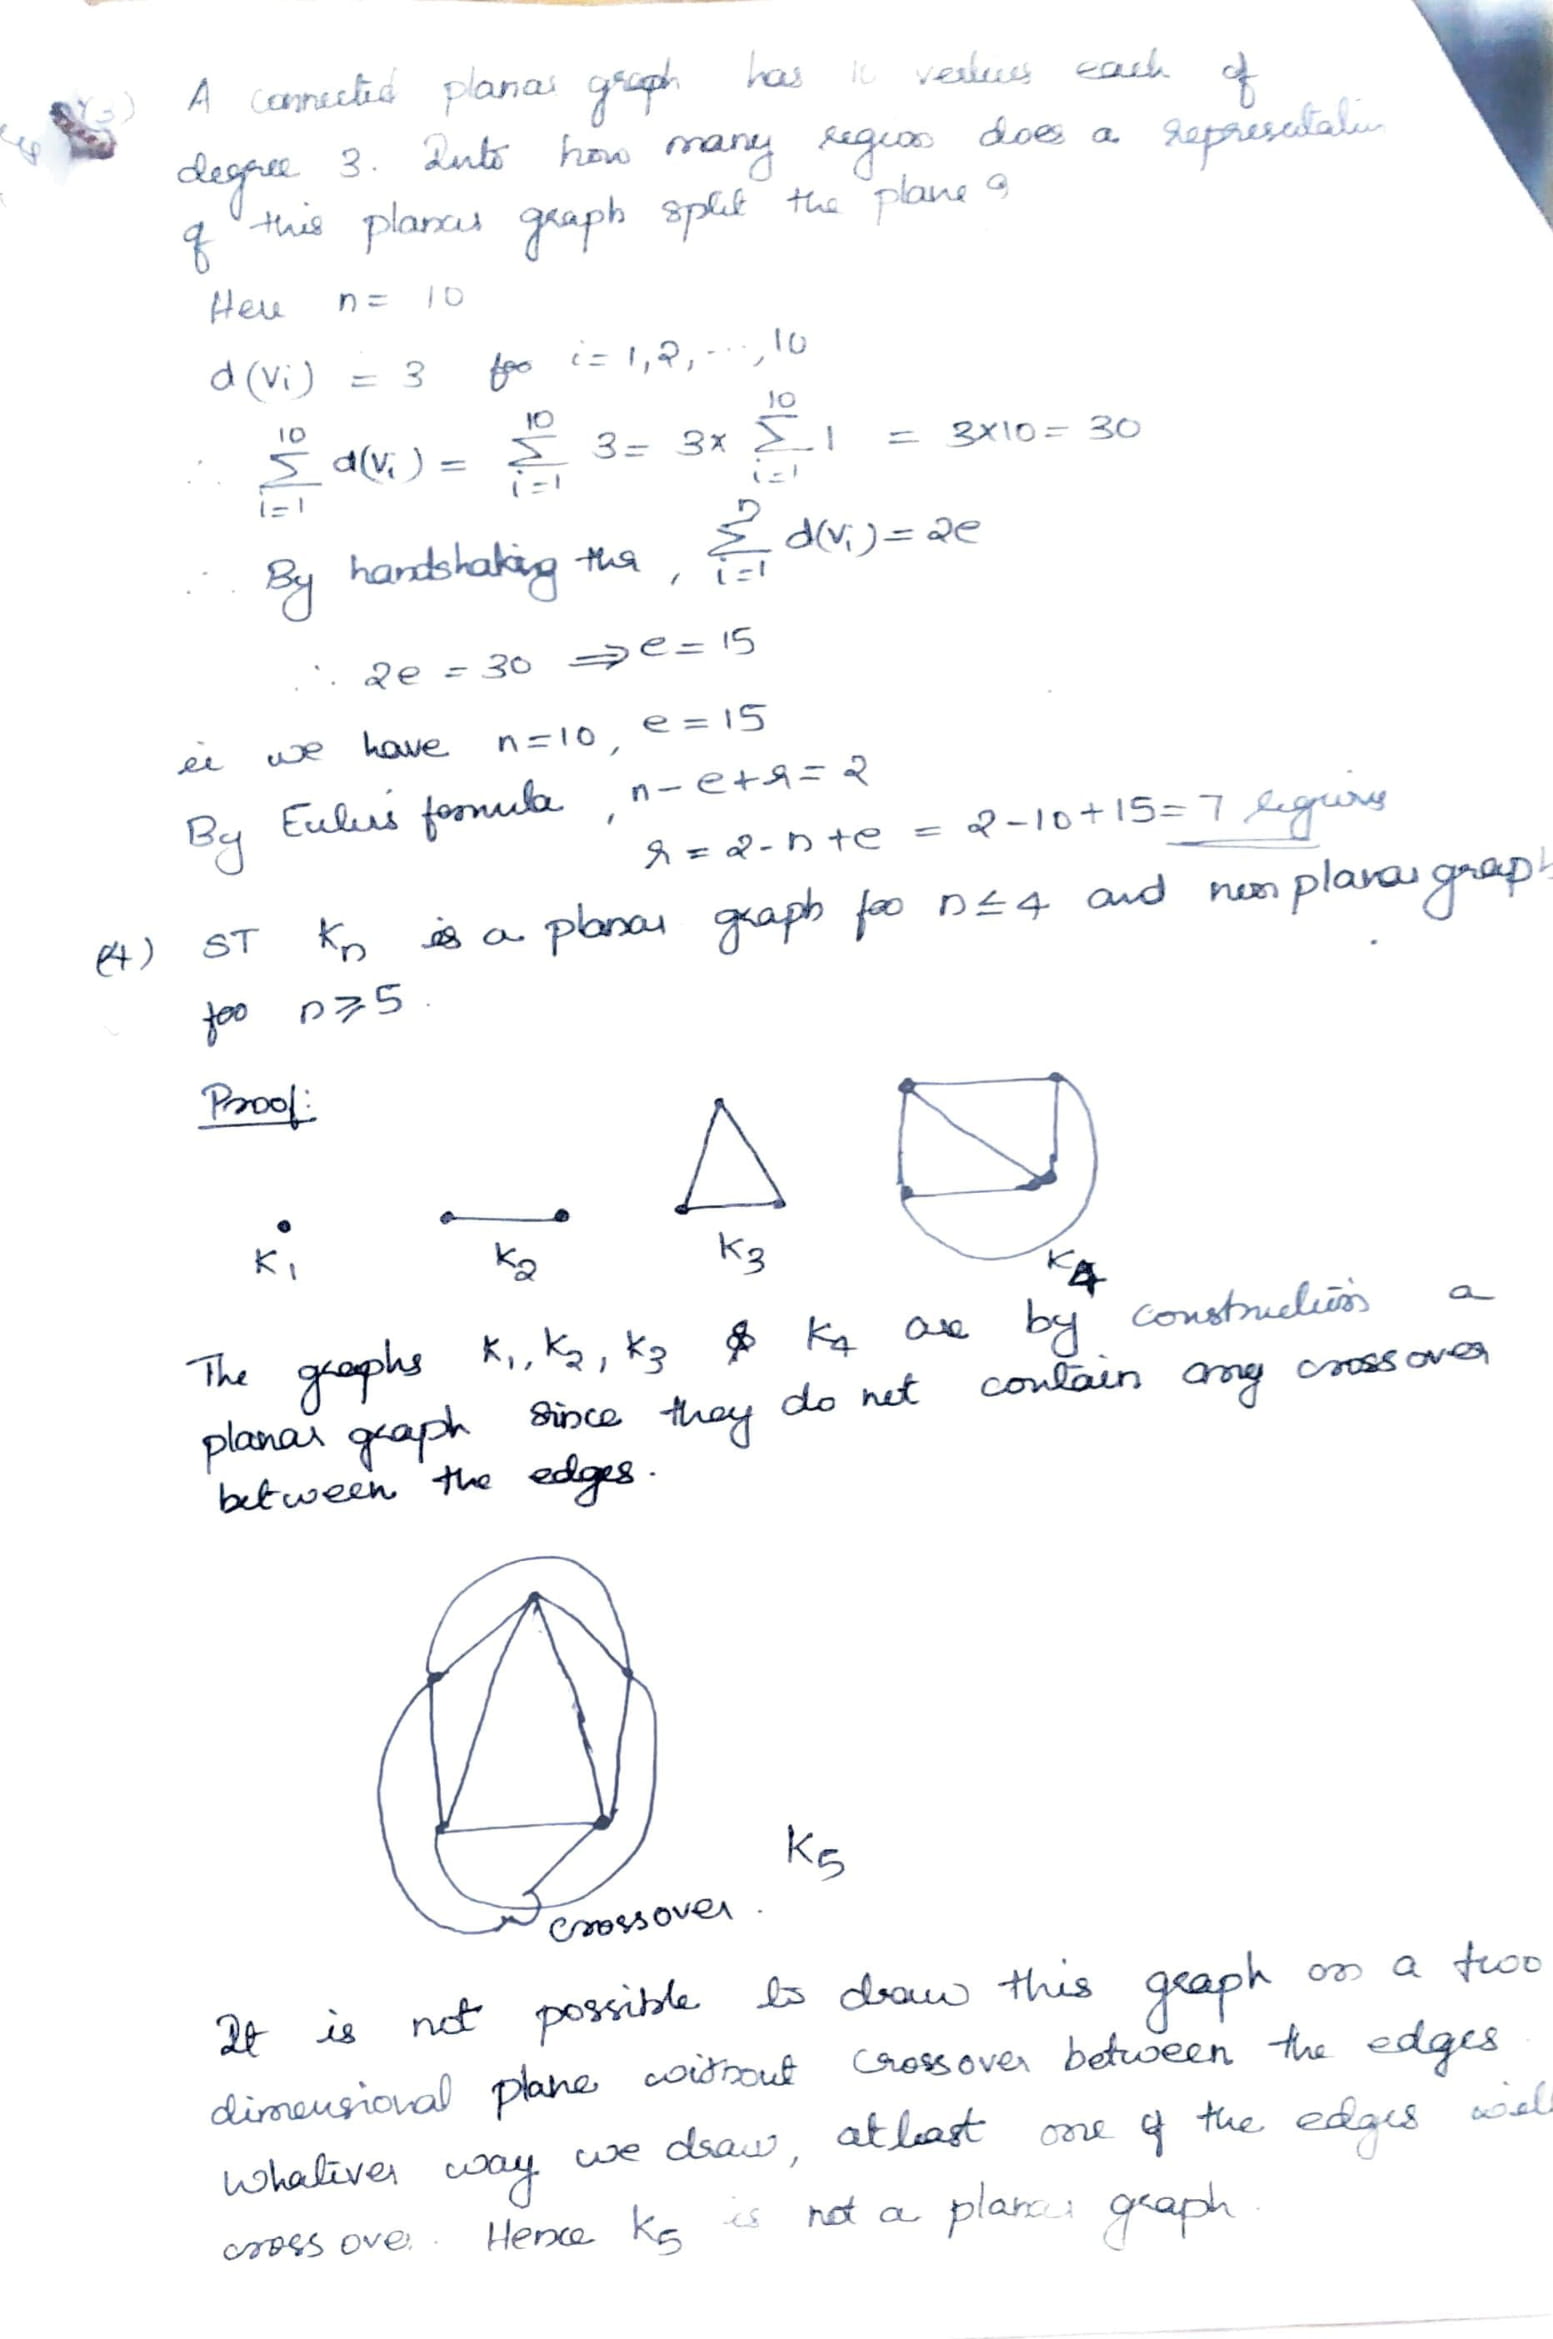 (3) A connected planar graph has 10 vertices each of
degree 3. Into how many regions does a representation
of this planar graph split the plane?
Here n = 10
d(vi) = 3 for i = 1, 2, ..., 10
∴ 10 Σ i=1 d(vi) = 10 Σ i=1 3 = 3x 10 Σ i=1 1 = 3x10 = 30
∴ By handshaking thm, n Σ i=1 d(vi) = 2e
∴ 2e = 30 ⇒ e = 15
ie we have n=10, e = 15
By Euler's formula, n - e + r = 2
r = 2 - n + e = 2 - 10 + 15 = 7 regions
(4) ST Kn is a planar graph for n ≤ 4 and non planar graph
for n ≥ 5.
Proof:
K1 K2 K3 K4
The graphs K1, K2, K3 & K4 are by construction a
planar graph since they do not contain any crossover
between the edges.
K5
crossover.
It is not possible to draw this graph on a two
dimensional plane without crossover between the edges
whatever way we draw, atleast one of the edges will
cross over. Hence K5 is not a planar graph.